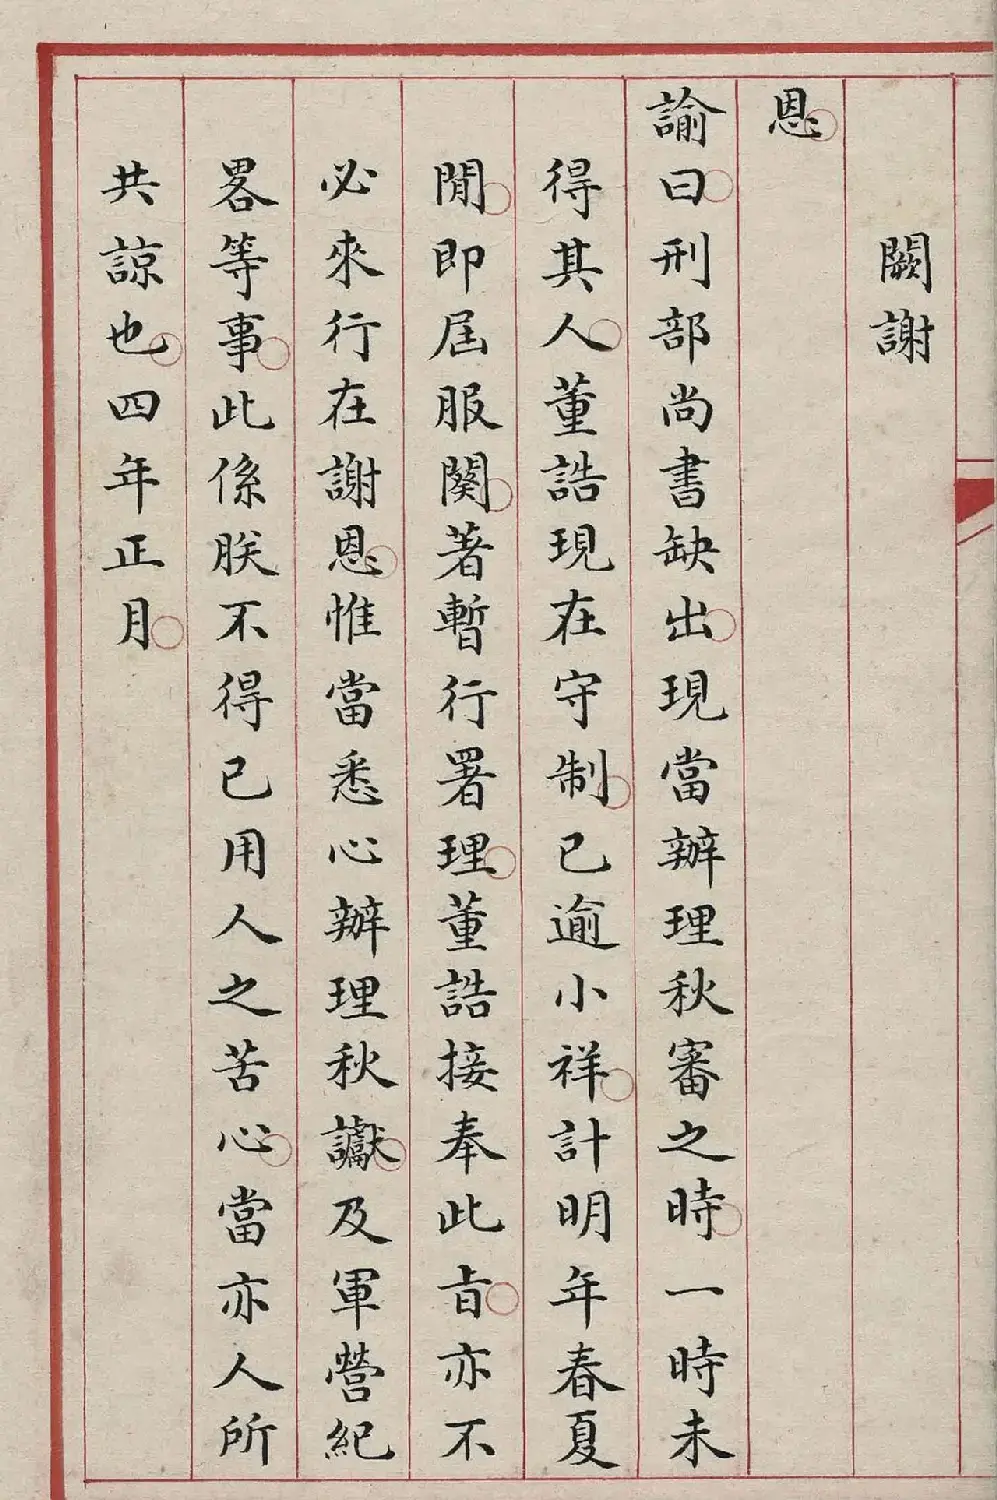 闕謝
恩
諭曰刑部尚書缺出現當辦理秋審之時一時未
得其人董誥現在守制已逾小祥計明年春夏
閒即屆服闋著暫行署理董誥接奉此旨亦不
必來行在謝恩惟當悉心辦理秋讞及軍營紀
畧等事此係朕不得已用人之苦心當亦人所
共諒也四年正月